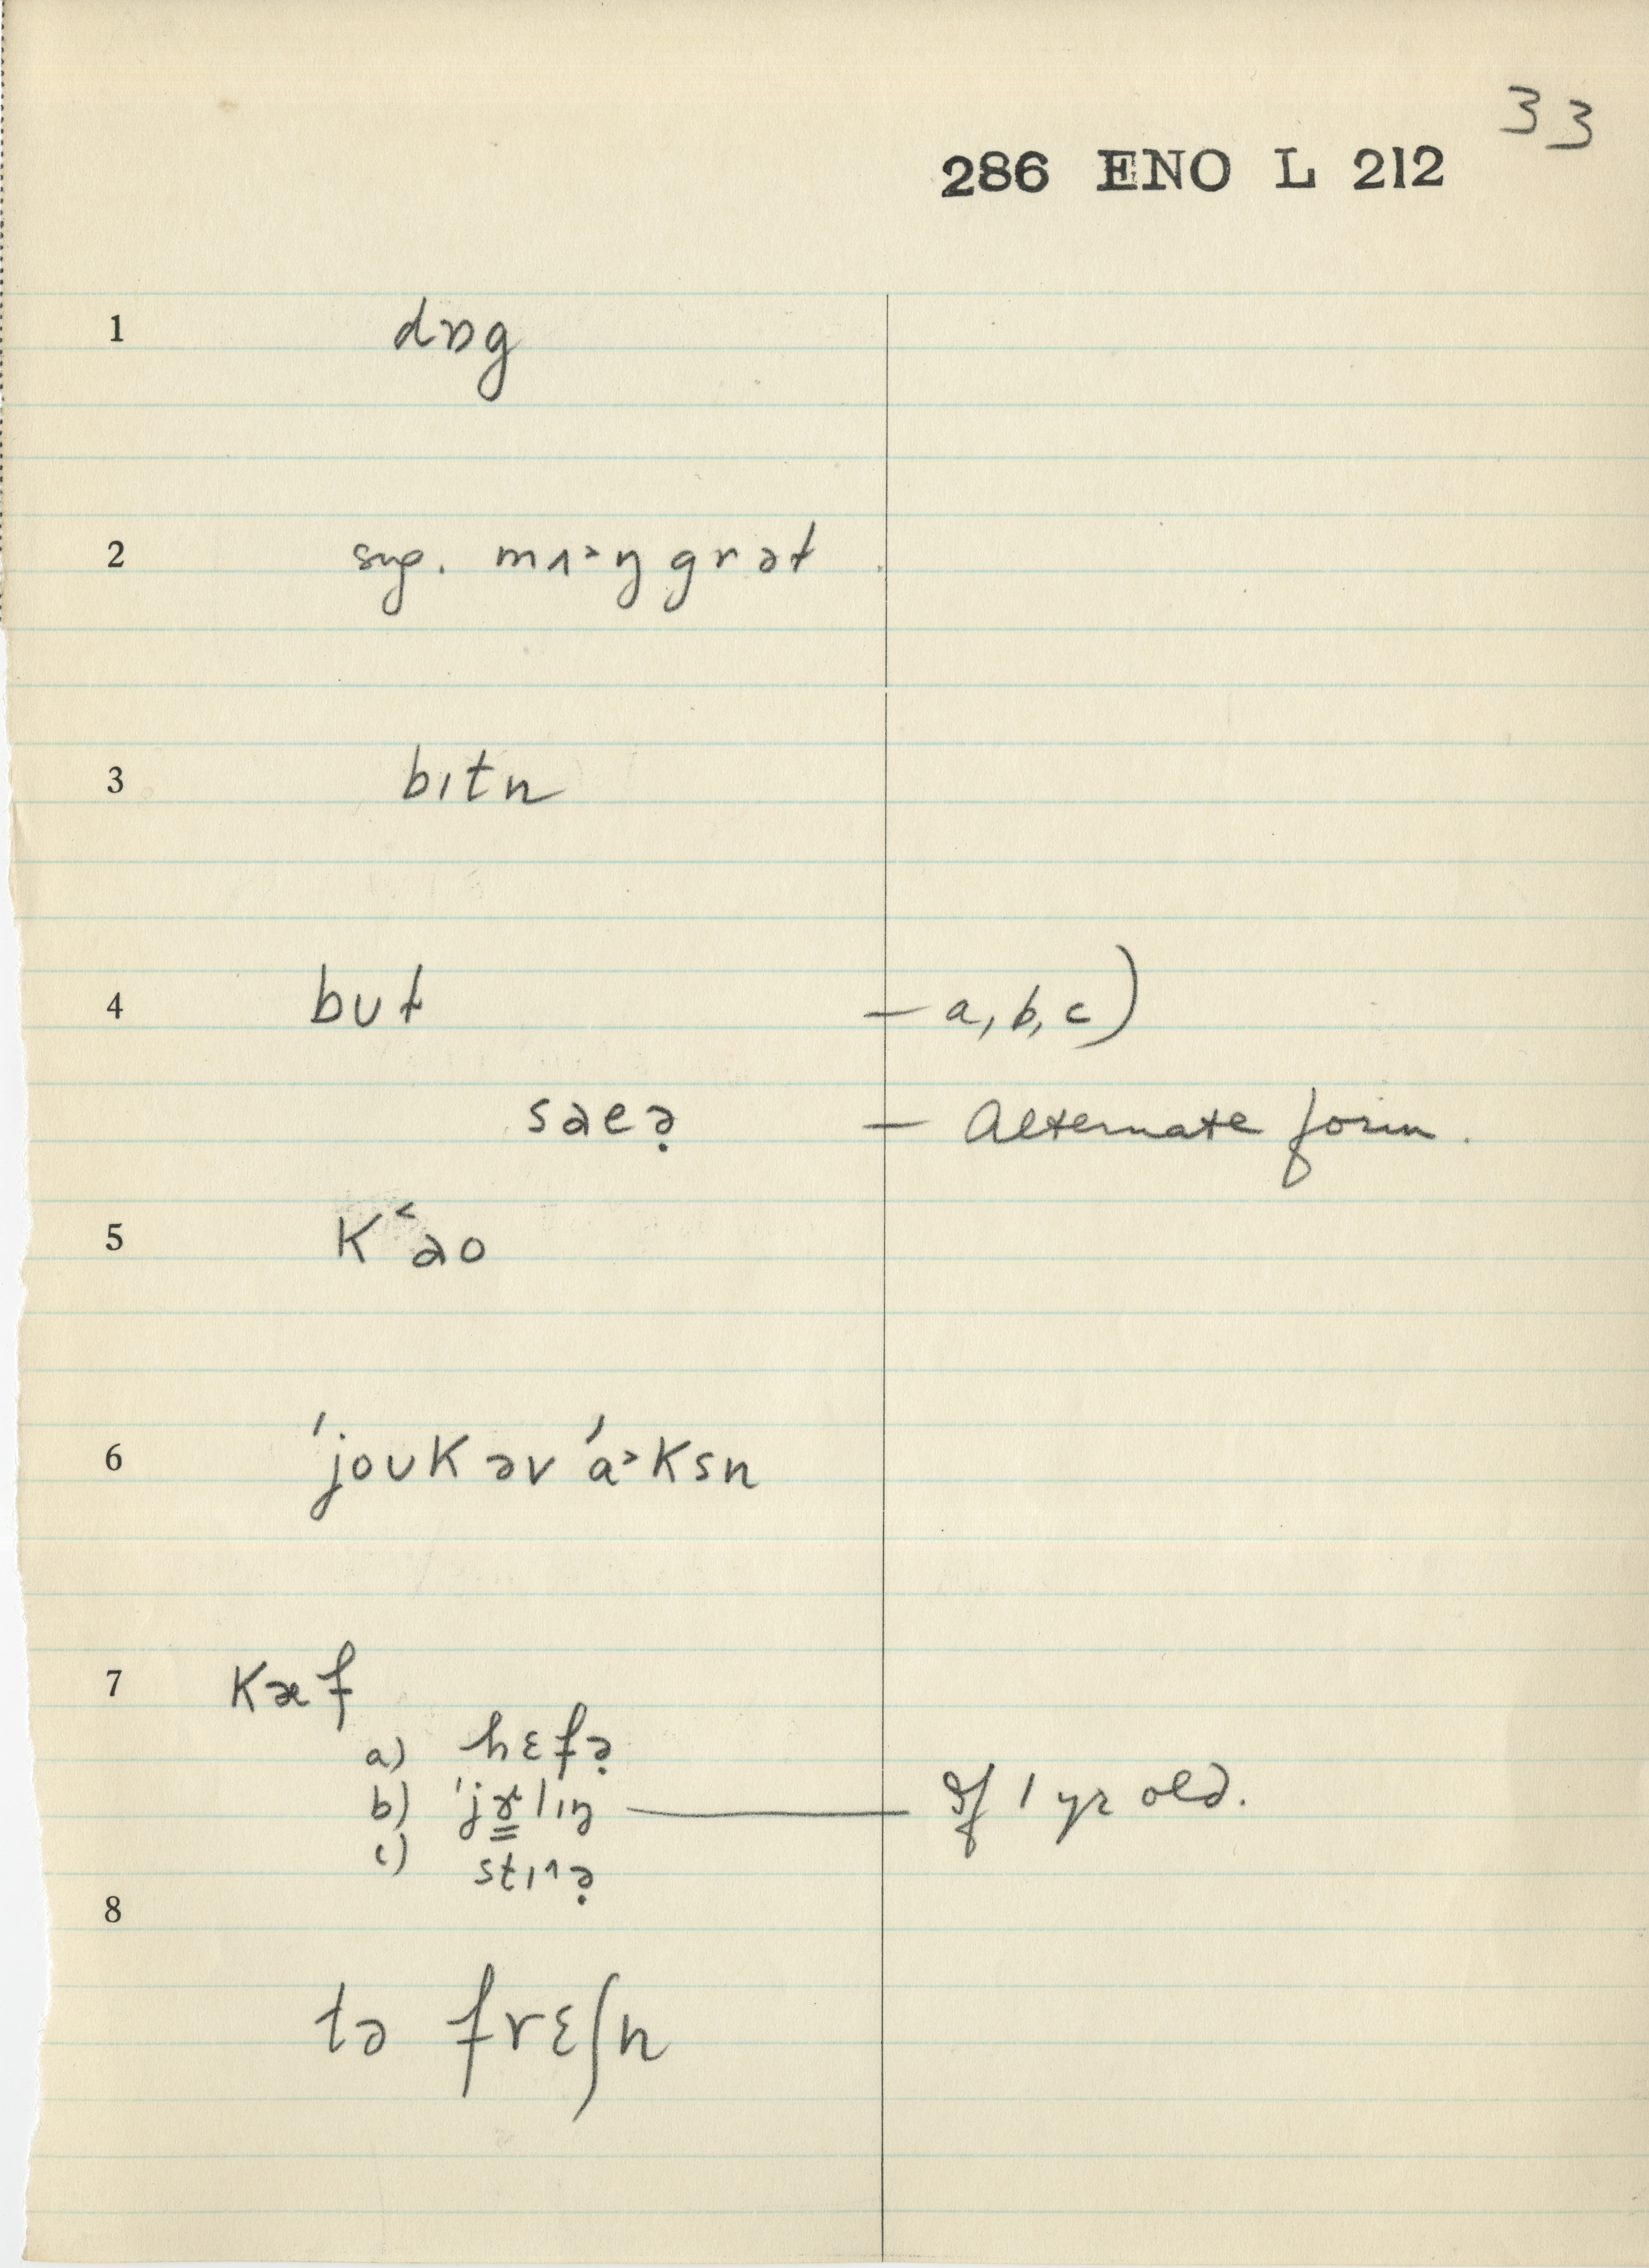 33
286 ENO L 212
1 dɒg
2 sug. mʌ˃ŋgrət
3 bɪtn
4 bʊt — a, b, c)
saeə̣ — Alternate form.
5 K˂ao
6 ˈjoʊKəv ˈa˃Ksn
7 Kæf
a) hɛfə̣
b) ˈjɤ̳lɪŋ — If 1 yr old.
c) stɪ^ə̣
8
tə frɛʃn